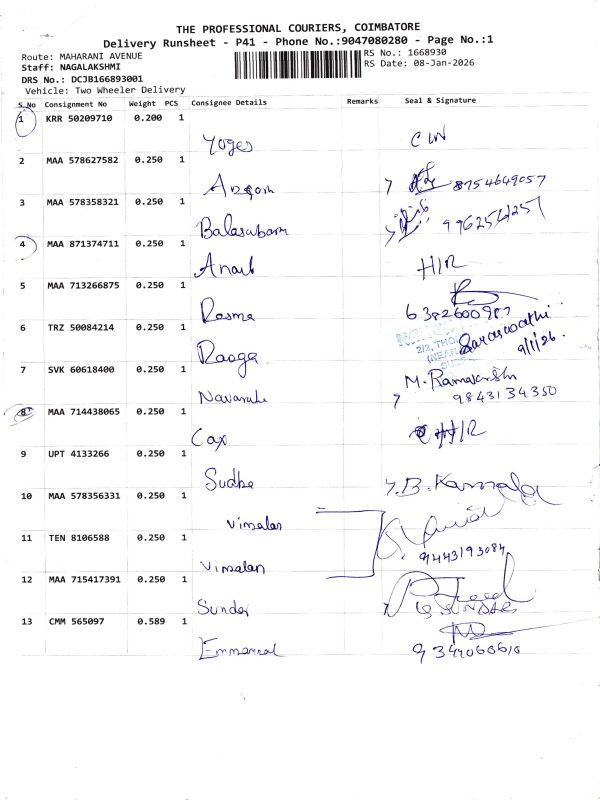 THE PROFESSIONAL COURIERS, COIMBATORE
Delivery Runsheet - P41 - Phone No.:9047080280 - Page No.:1
Route: MAHARANI AVENUE
RS No.: 1668930
Staff: NAGALAKSHMI
RS Date: 08-Jan-2026
DRS No.: DCJB166893001
Vehicle: Two Wheeler Delivery
S.No Consignment No Weight PCS Consignee Details Remarks Seal & Signature
1 KRR 50209710 0.200 1
Yoges
2 MAA 578627582 0.250 1
8754649057
3 MAA 578358321 0.250 1
Balasubam
4 MAA 871374711 0.250 1
H/R
5 MAA 713266875 0.250 1
Rasma
6 TRZ 50084214 0.250 1
Raaga Saraswathi
9/1/26.
7 SVK 60618400 0.250 1
9843134350
8 MAA 714438065 0.250 1
Cax H/R
9 UPT 4133266 0.250 1
Sudha
10 MAA 578356331 0.250 1
Vimalan
11 TEN 8106588 0.250 1
9443193084
Vimalan
12 MAA 715417391 0.250 1
Sunder
13 CMM 565097 0.589 1
Emmanual